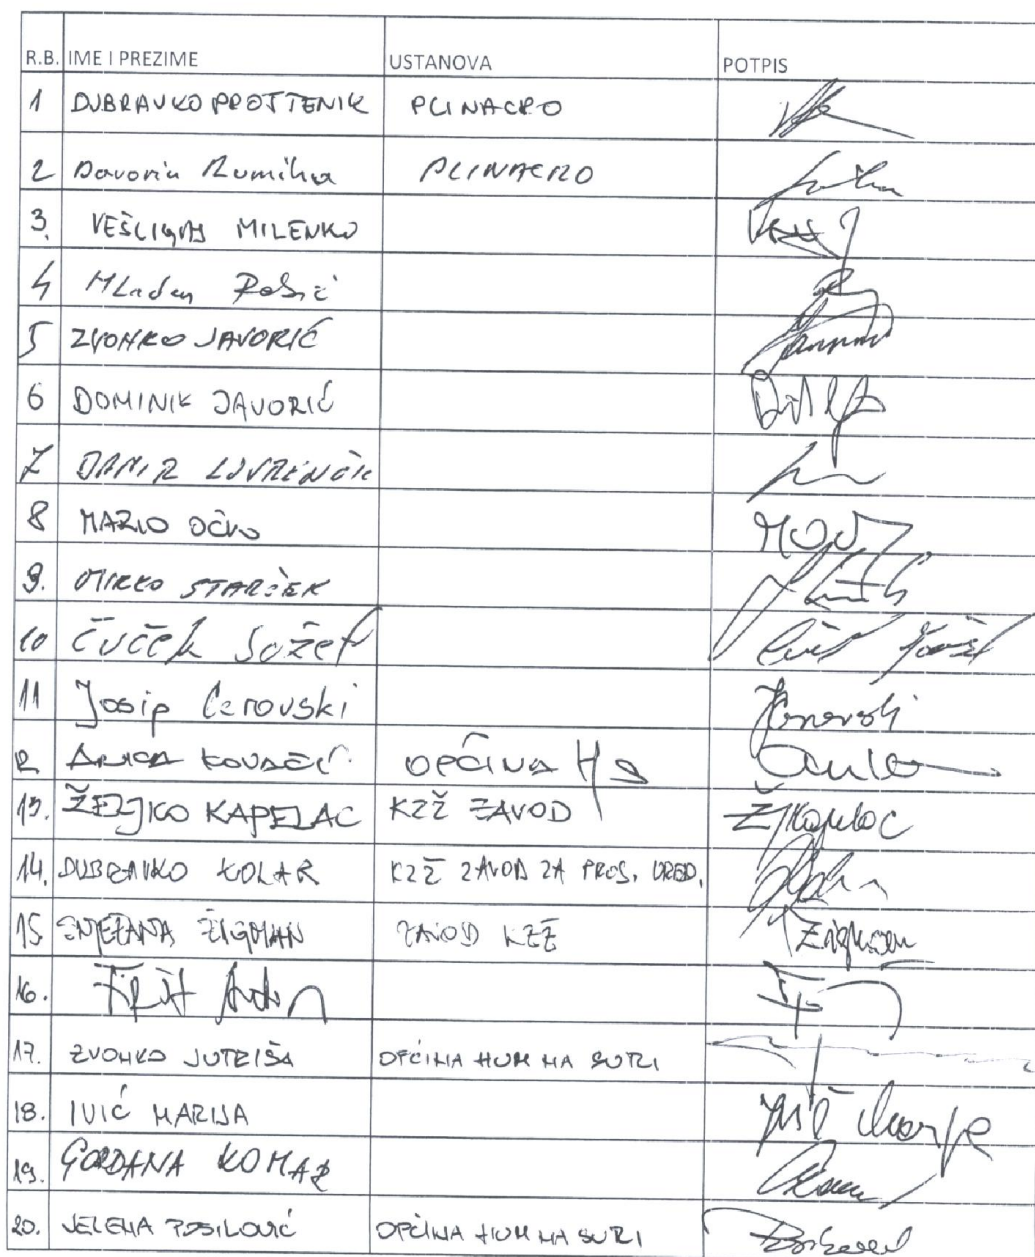 R.B. IME I PREZIME USTANOVA POTPIS
1 DUBRAVKO PROTTENIK PLINACRO
2 Davorin Rumiha PLINACRO
3. VEŠLIGAJ MILENKO
4 Mladen
5 ZVONKO JAVORIĆ
6 DOMINIK JAVORIĆ
7 DAMIR LOVRENČIĆ
8 MARIO OČKO
9. MIRKO STARČEK
10 ČUČEK Jožef
11 Josip Cerovski
12 KOVAČEĆ OPĆINA
13. ŽELJKO KAPELAC KZŽ ZAVOD ŽJKapelac
14. DUBRAVKO KOLAR KZŽ ZAVOD ZA PROS. URED.
15 SNJEŽANA ŽIGMAN ZAVOD KZŽ Žigman
16.
17. ZVONKO JUTRIŠA OPĆINA HUM NA SUTLI
18. IVIĆ MARIJA Ivić Marija
19. GORDANA KOMAR
20. JELENA POSILOVIĆ OPĆINA HUM NA SUTLI